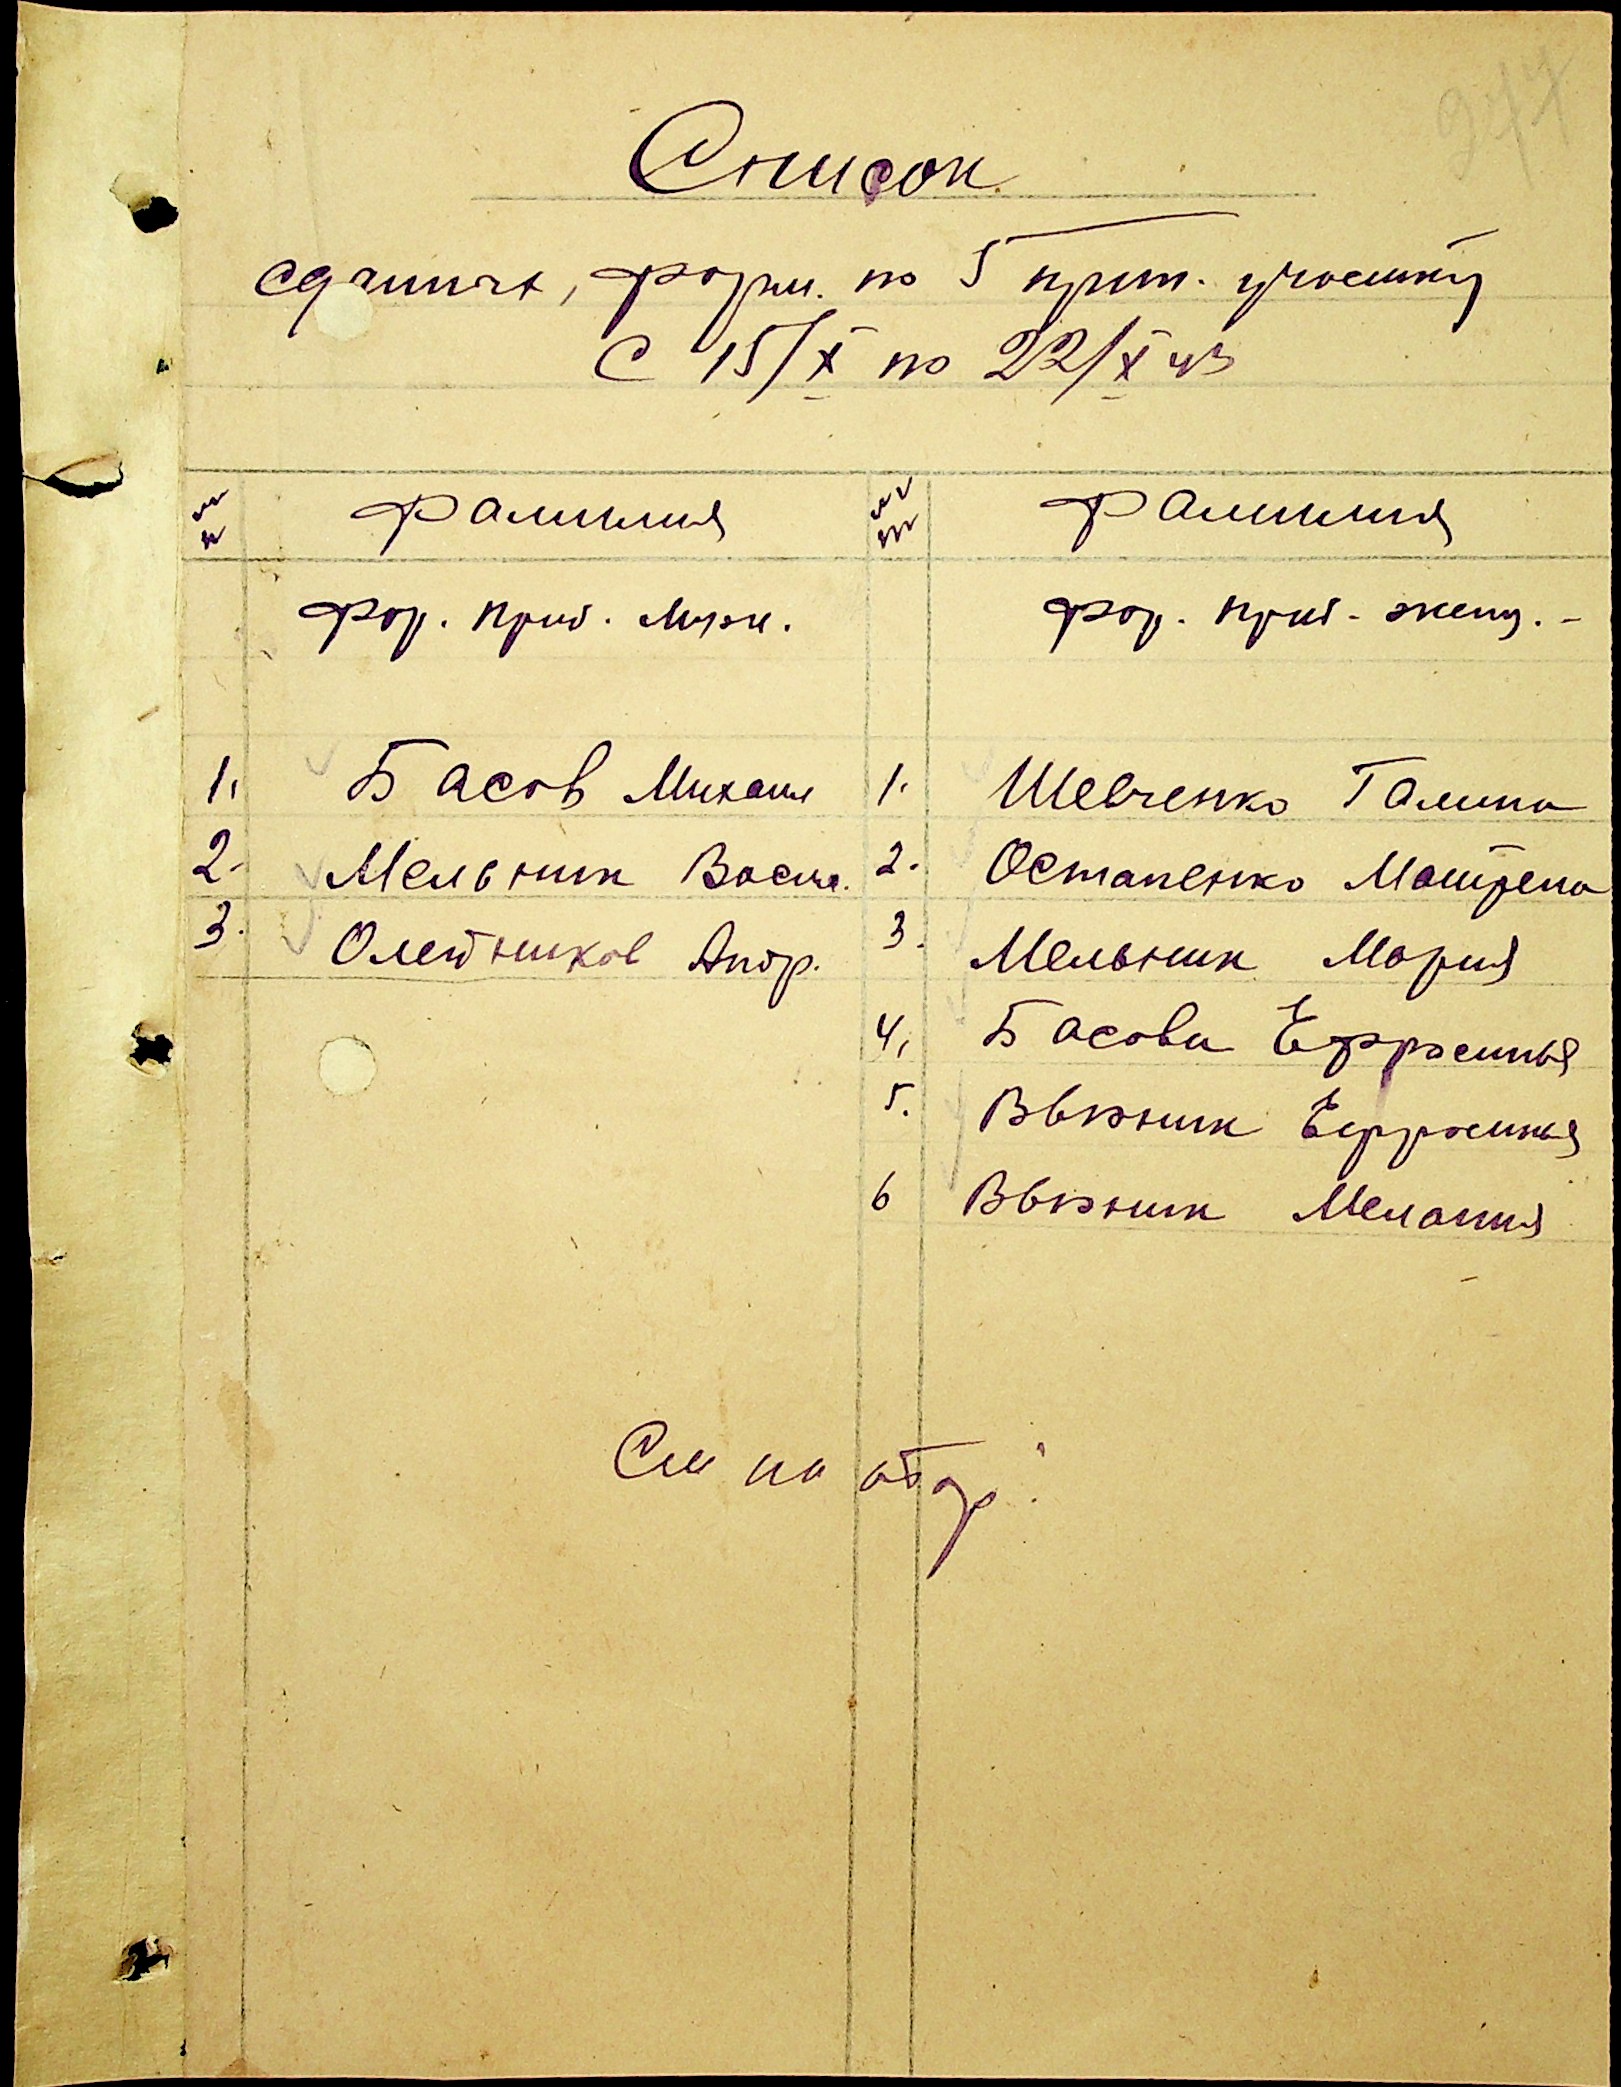 977
Список
сданных, форм. по 5 прит. участку
с 15/X по 22/X 43
№№ Фамилия №№ Фамилия
фор. приб. муж. фор. приб. женщ.
1. Басов Михаил 1. Шевченко Галина
2. Мельник Васил. 2. Остапенко Матрена
3. Олейников Андр. 3. Мельник Мария
4. Басова Ефросинья
5. Ефросинья
6 Мелания
См на обор.